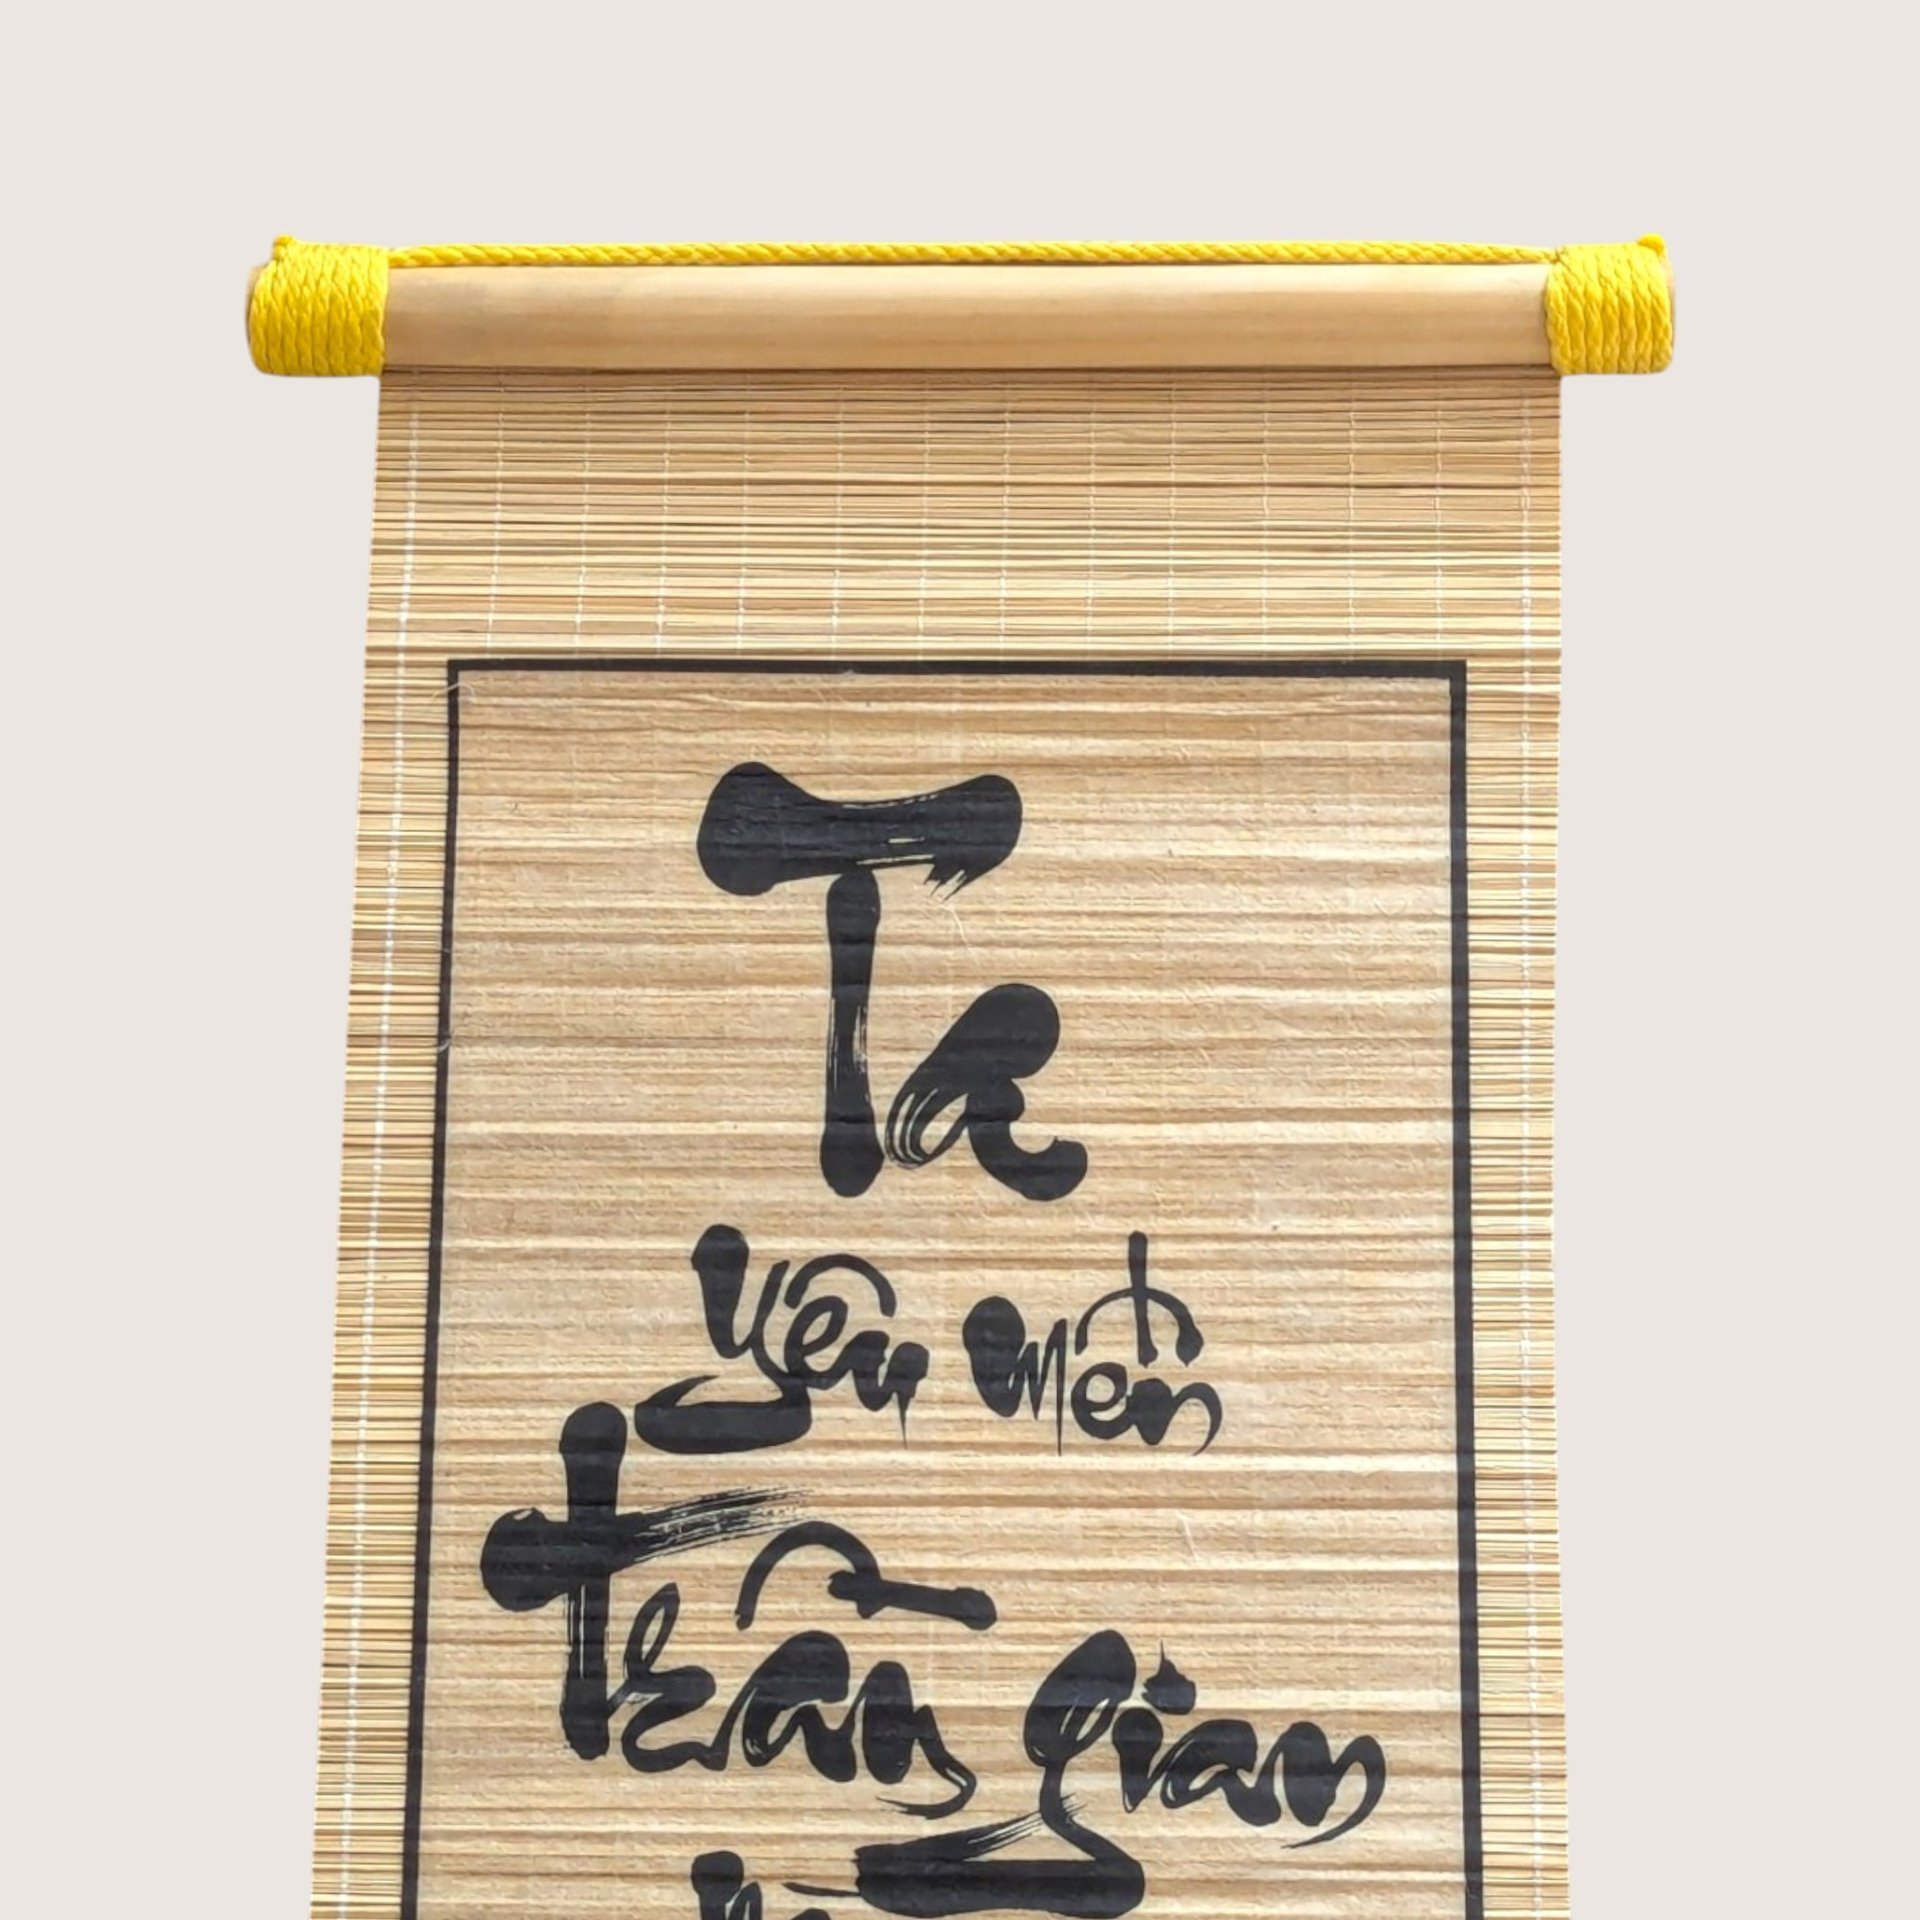 Ta
yêu mến
trần gian